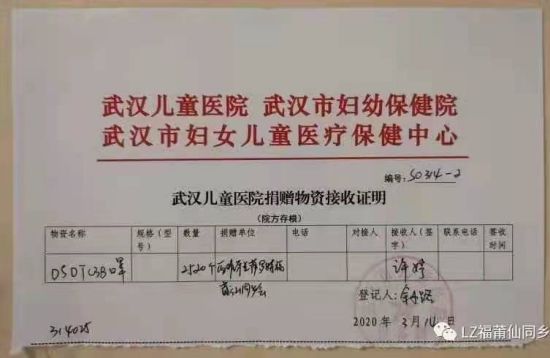 武汉儿童医院 武汉市妇幼保健院
武汉市妇女儿童医疗保健中心
编号: S0314-2
武汉儿童医院捐赠物资接收证明
(院方存根)
物资名称 规格(型号) 数量 捐赠单位 电话 对接人 接收人(签字) 联系电话 签收时间
口罩 2520个 许婷
登记人:
2020 年 3 月 14 日
314025
LZ福莆仙同乡